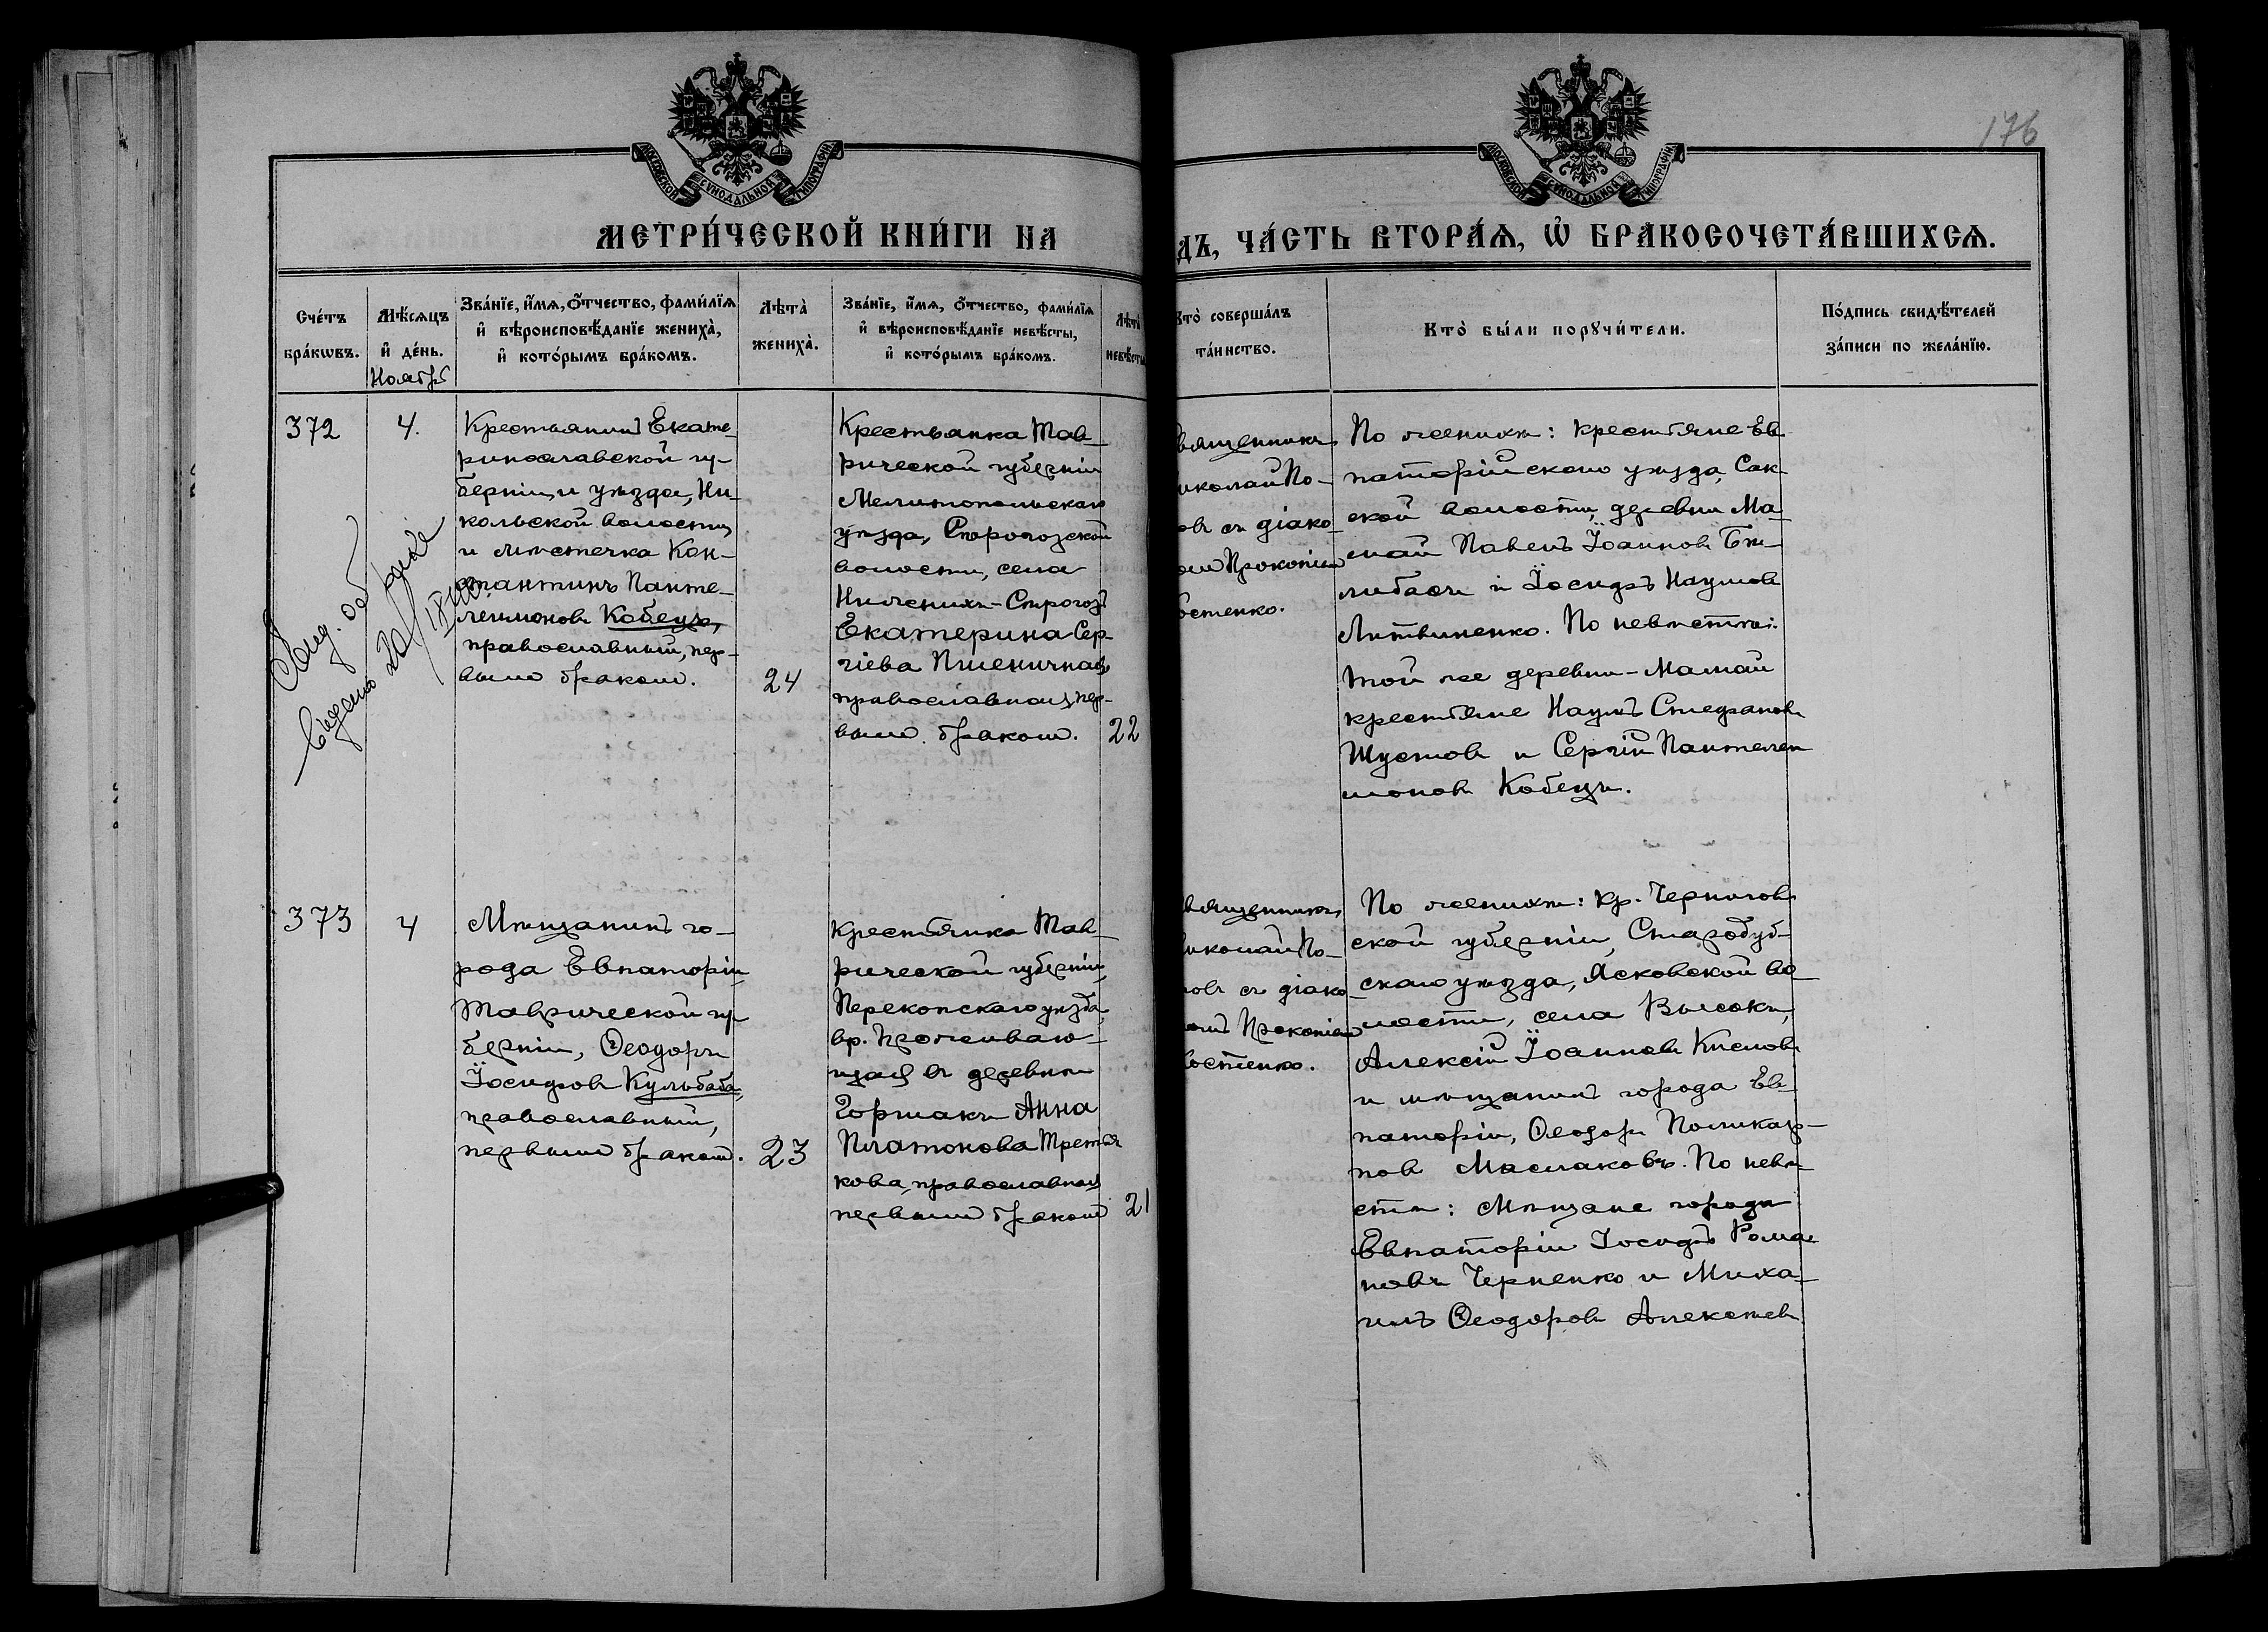 176
МОСКОВСКОЙ СѴНОДАЛЬНОЙ ТИПОГРАФІИ
МОСКОВСКОЙ СѴНОДАЛЬНОЙ ТИПОГРАФІИ
МЕТРИ́ЧЕСКОЙ КНИ́ГИ НА
ДЪ, ЧА́СТЬ ВТОРА́Ѧ, Ѡ҆ БРАКОСОЧЕТА́ВШИХСѦ.
Сче́тъ
бра́кѡвъ.
Мѣ́сѧцъ
и҆ де́нь.
Ноябрь
Зва́нїе, и҆́мѧ, ѻ҆́тчество, фами́лїѧ
и҆ вѣроисповѣ́данїе жениха̀,
и҆ кото́рымъ бра́комъ.
Лѣта̀
жениха̀.
Зва́нїе, и҆́мѧ, ѻ҆́тчество, фами́лїѧ
и҆ вѣроисповѣ́данїе невѣ́сты,
и҆ кото́рымъ бра́комъ.
Лѣта̀
невѣсты
Кто̀ соверша́лъ
та́инство.
Кто̀ бы́ли порꙋчи́тели.
По́дпись свидѣ́телей
за́писи по жела́нїю.
372
4.
Крестьянинъ Екате-
ринославской гу-
берніи и уѣзда, Ни-
кольской волости,
и мѣстечка Кон-
стантинъ Панте-
леимоновъ Кобецъ,
православный, пер-
вымъ бракомъ.
24
Крестьянка Тав-
рической губерніи
Мелитопольскаго
уѣзда, Строгозской
волости, села
Нижнихъ-Строгозъ
Екатерина Сер-
гіева Пшеничная
православная, пер-
вымъ бракомъ.
22
вященникъ
иколай По-
овъ съ діако-
омъ Прокопіем
остенко.
По женихѣ: крестьяне Ев-
паторійскаго уѣзда, Сак-
ской волости, деревни Ма-
май Павелъ Іоанновъ Бѣ-
либасъ и Іосифъ Наумовъ
Литвиненко. По невѣстѣ:
той же деревни-Мамай
крестьяне Наумъ Стефановъ
Шустовъ и Сергій Пантелеи
моновъ Кобецъ.
373
4
Мѣщанинъ го-
рода Евпаторіи
Таврической гу-
берніи, Ѳеодоръ
Іосифовъ Кульбаба,
православный,
первымъ бракомъ.
23
Крестьянка Тав-
рической губерніи,
Перекопскаго уѣзда,
вр. проживаю-
щая въ деревнѣ
Горшакъ Анна
Платонова Третья
кова, православная
первымъ бракомъ
21
вященникъ
иколай По-
овъ съ діако-
омъ Прокопіем
остенко.
По женихѣ: кр. Чернигов-
ской губерніи, Стародуб-
скаго уѣзда, Лясковской во-
лости, села Высокъ,
Алексій Іоанновъ Кисловъ
и мѣщанинъ города Ев-
паторіи, Ѳеодоръ Поликар-
повъ Маслаковъ. По невѣ-
стѣ: Мѣщане города
Евпаторіи Іосифъ Рома-
новъ Черненко и Миха-
илъ Ѳеодоровъ Алексѣевъ